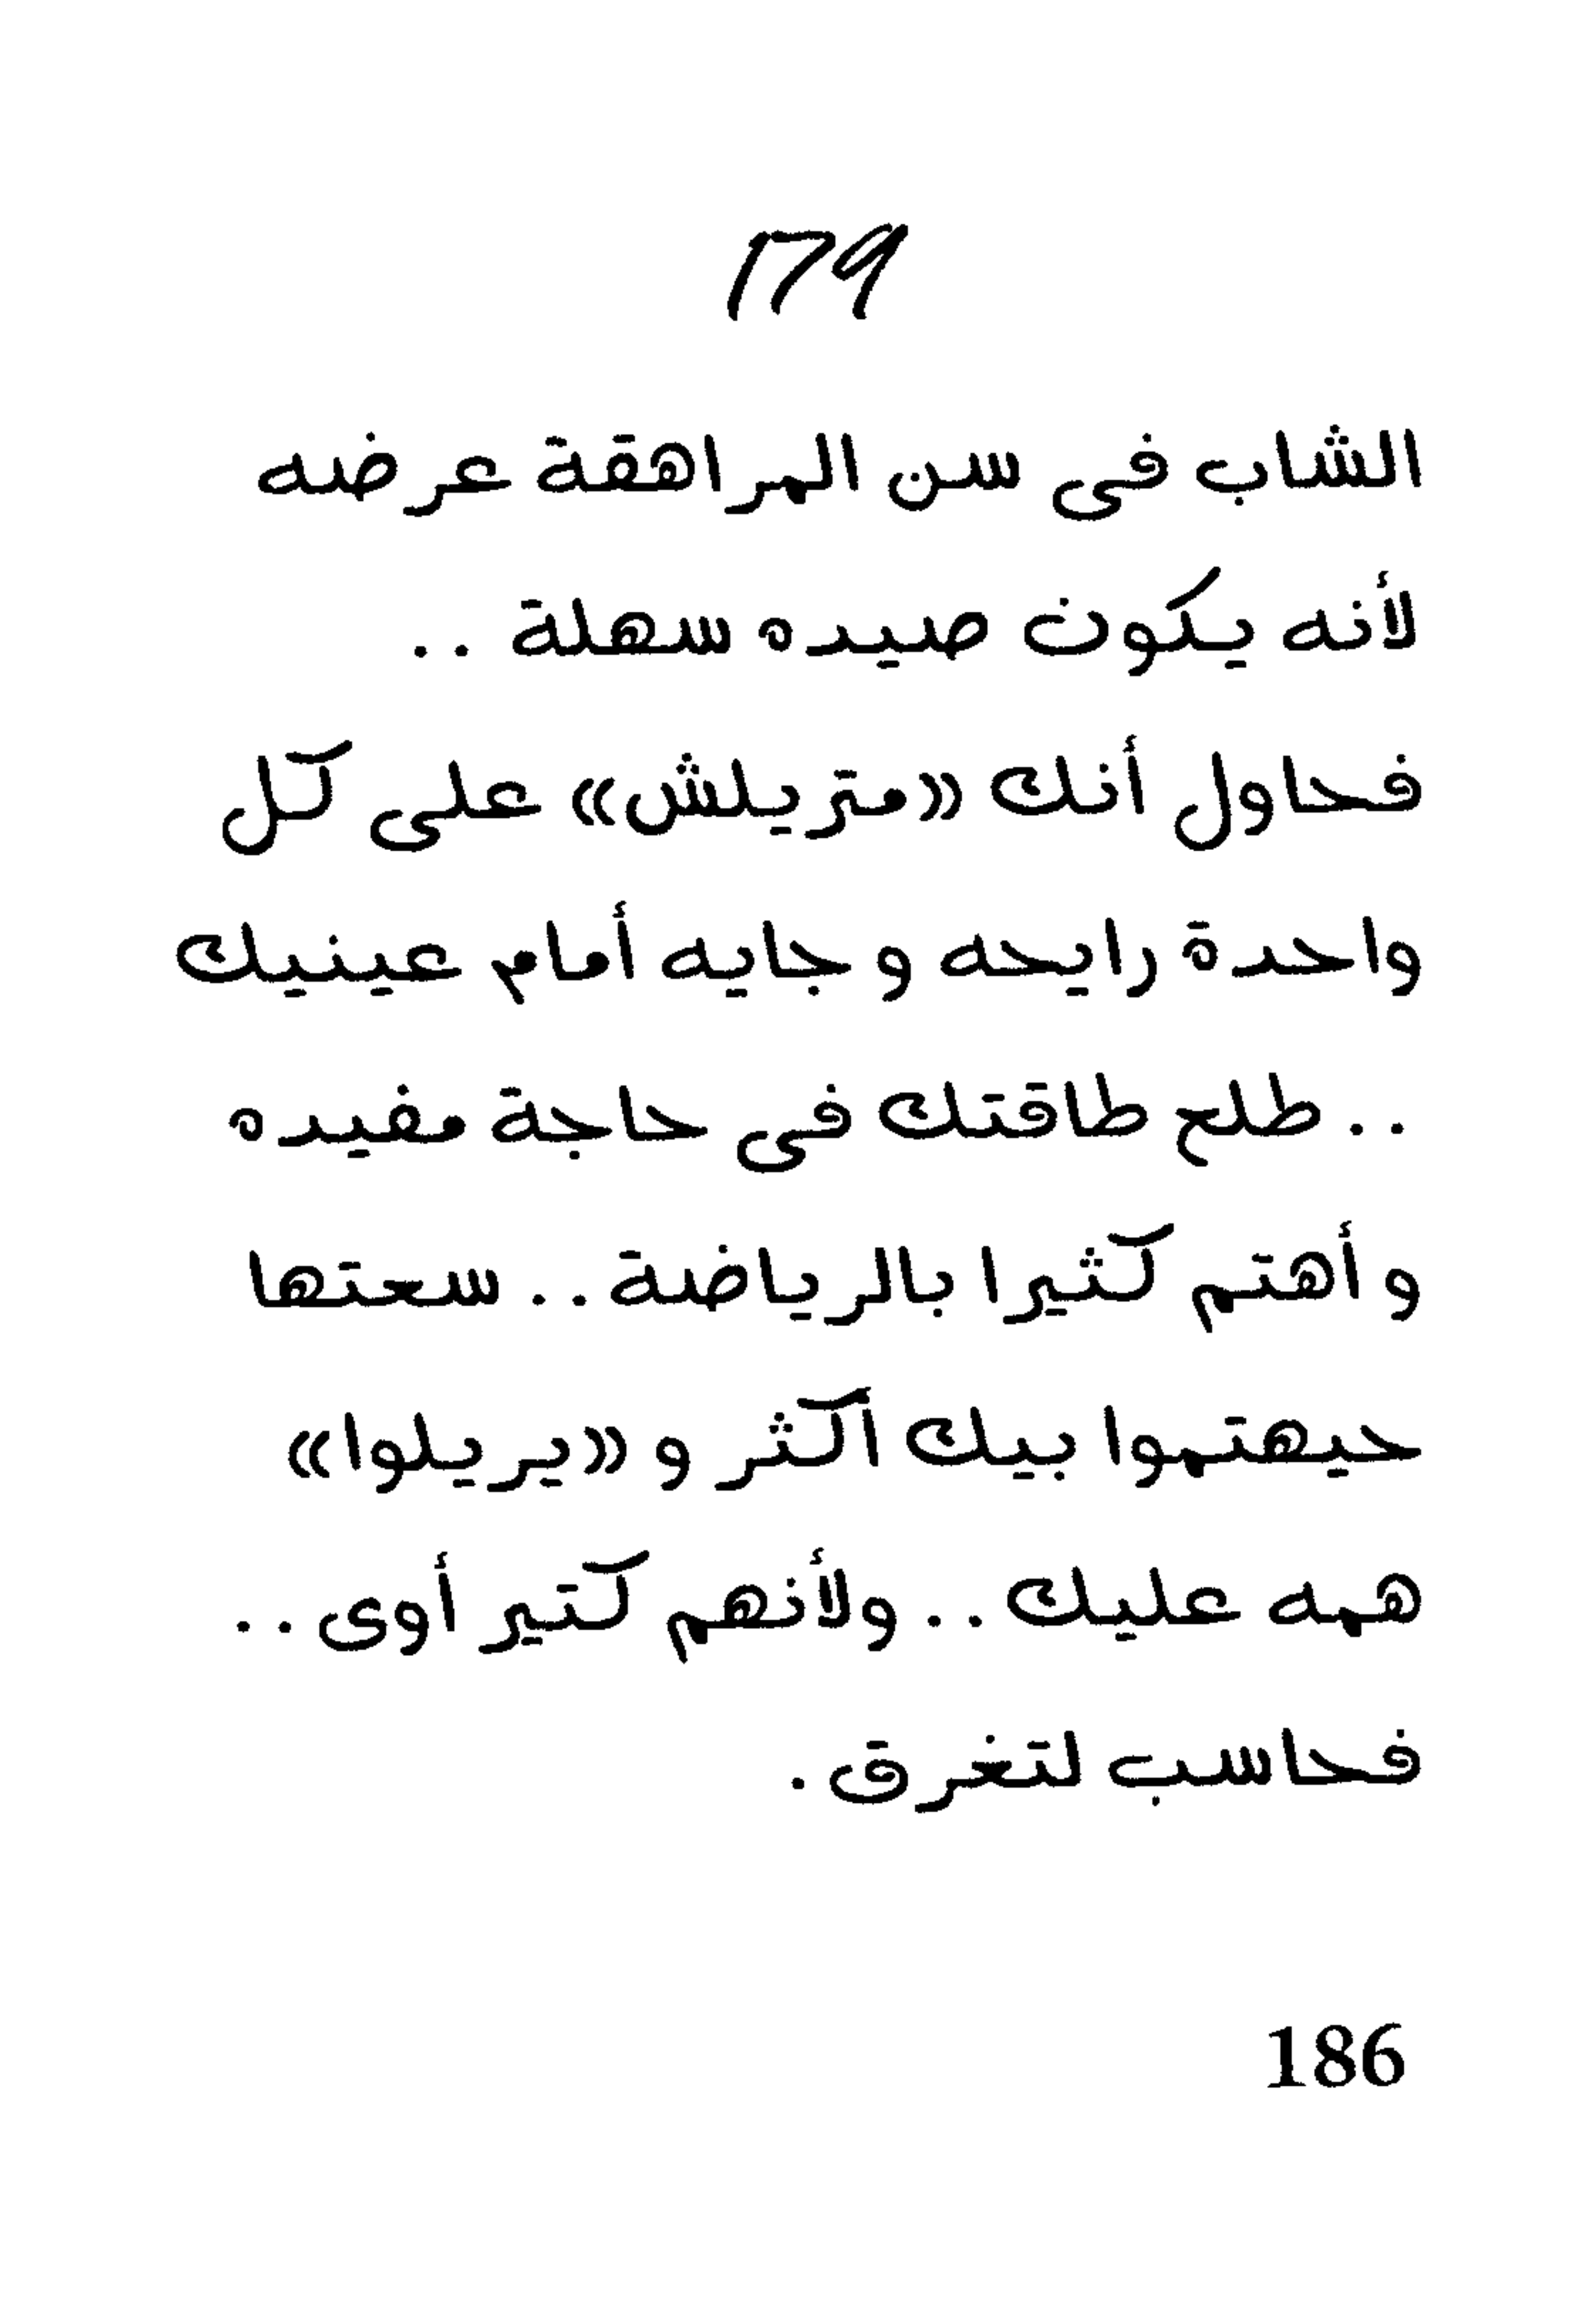 179
الشاب فى سن المراهقة عرضه
لأنه يكون صيده سهلة ..
فحاول أنك «متريلش» على كل
واحدة رايحه و جايه أمام عينيك
.. طلع طاقتك فى حاجة مفيده
و أهتم كثيرا بالرياضة .. سعتها
حيهتموا بيك أكثر و «يريلوا»
همه عليك .. ولأنهم كتير أوى ..
فحاسب لتغرق .
186